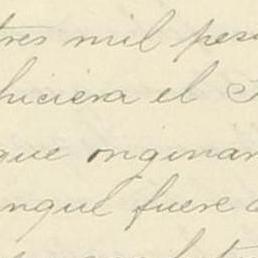 tres mil pes
hiciera el
que originar
unque fuere